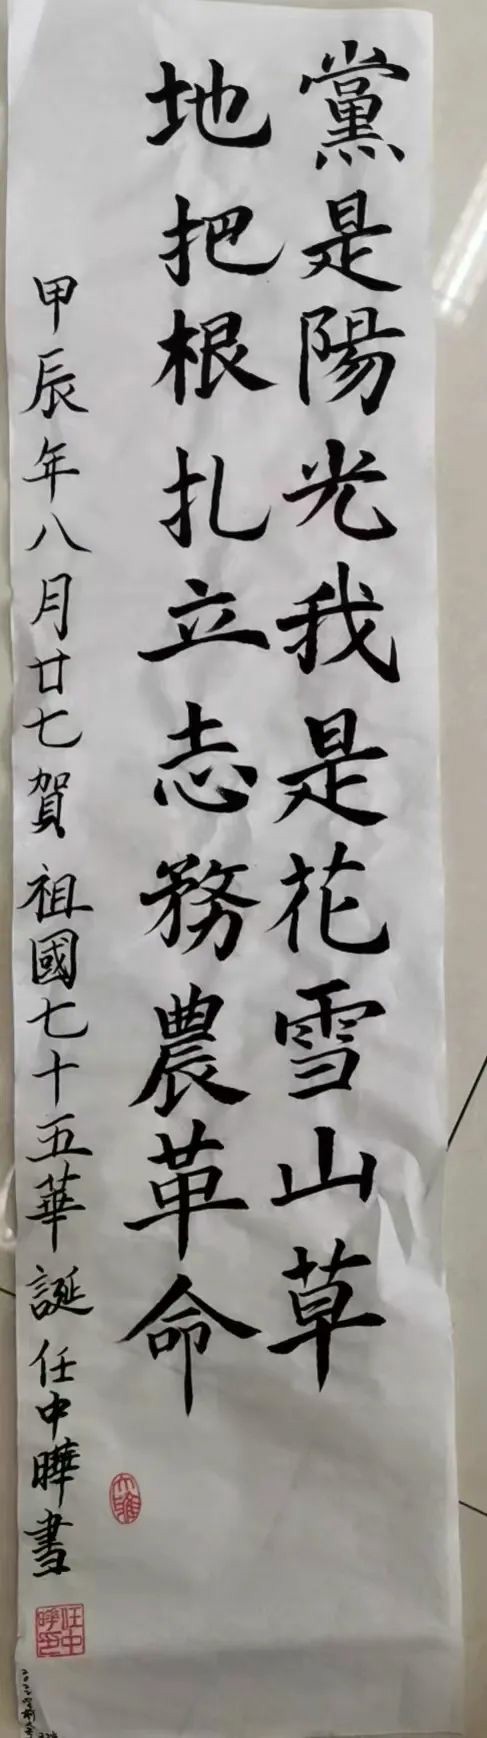 黨是陽光我是花雪山草
地把根扎立志務農革命
甲辰年八月廿七賀祖國七十五華誕任中曄書